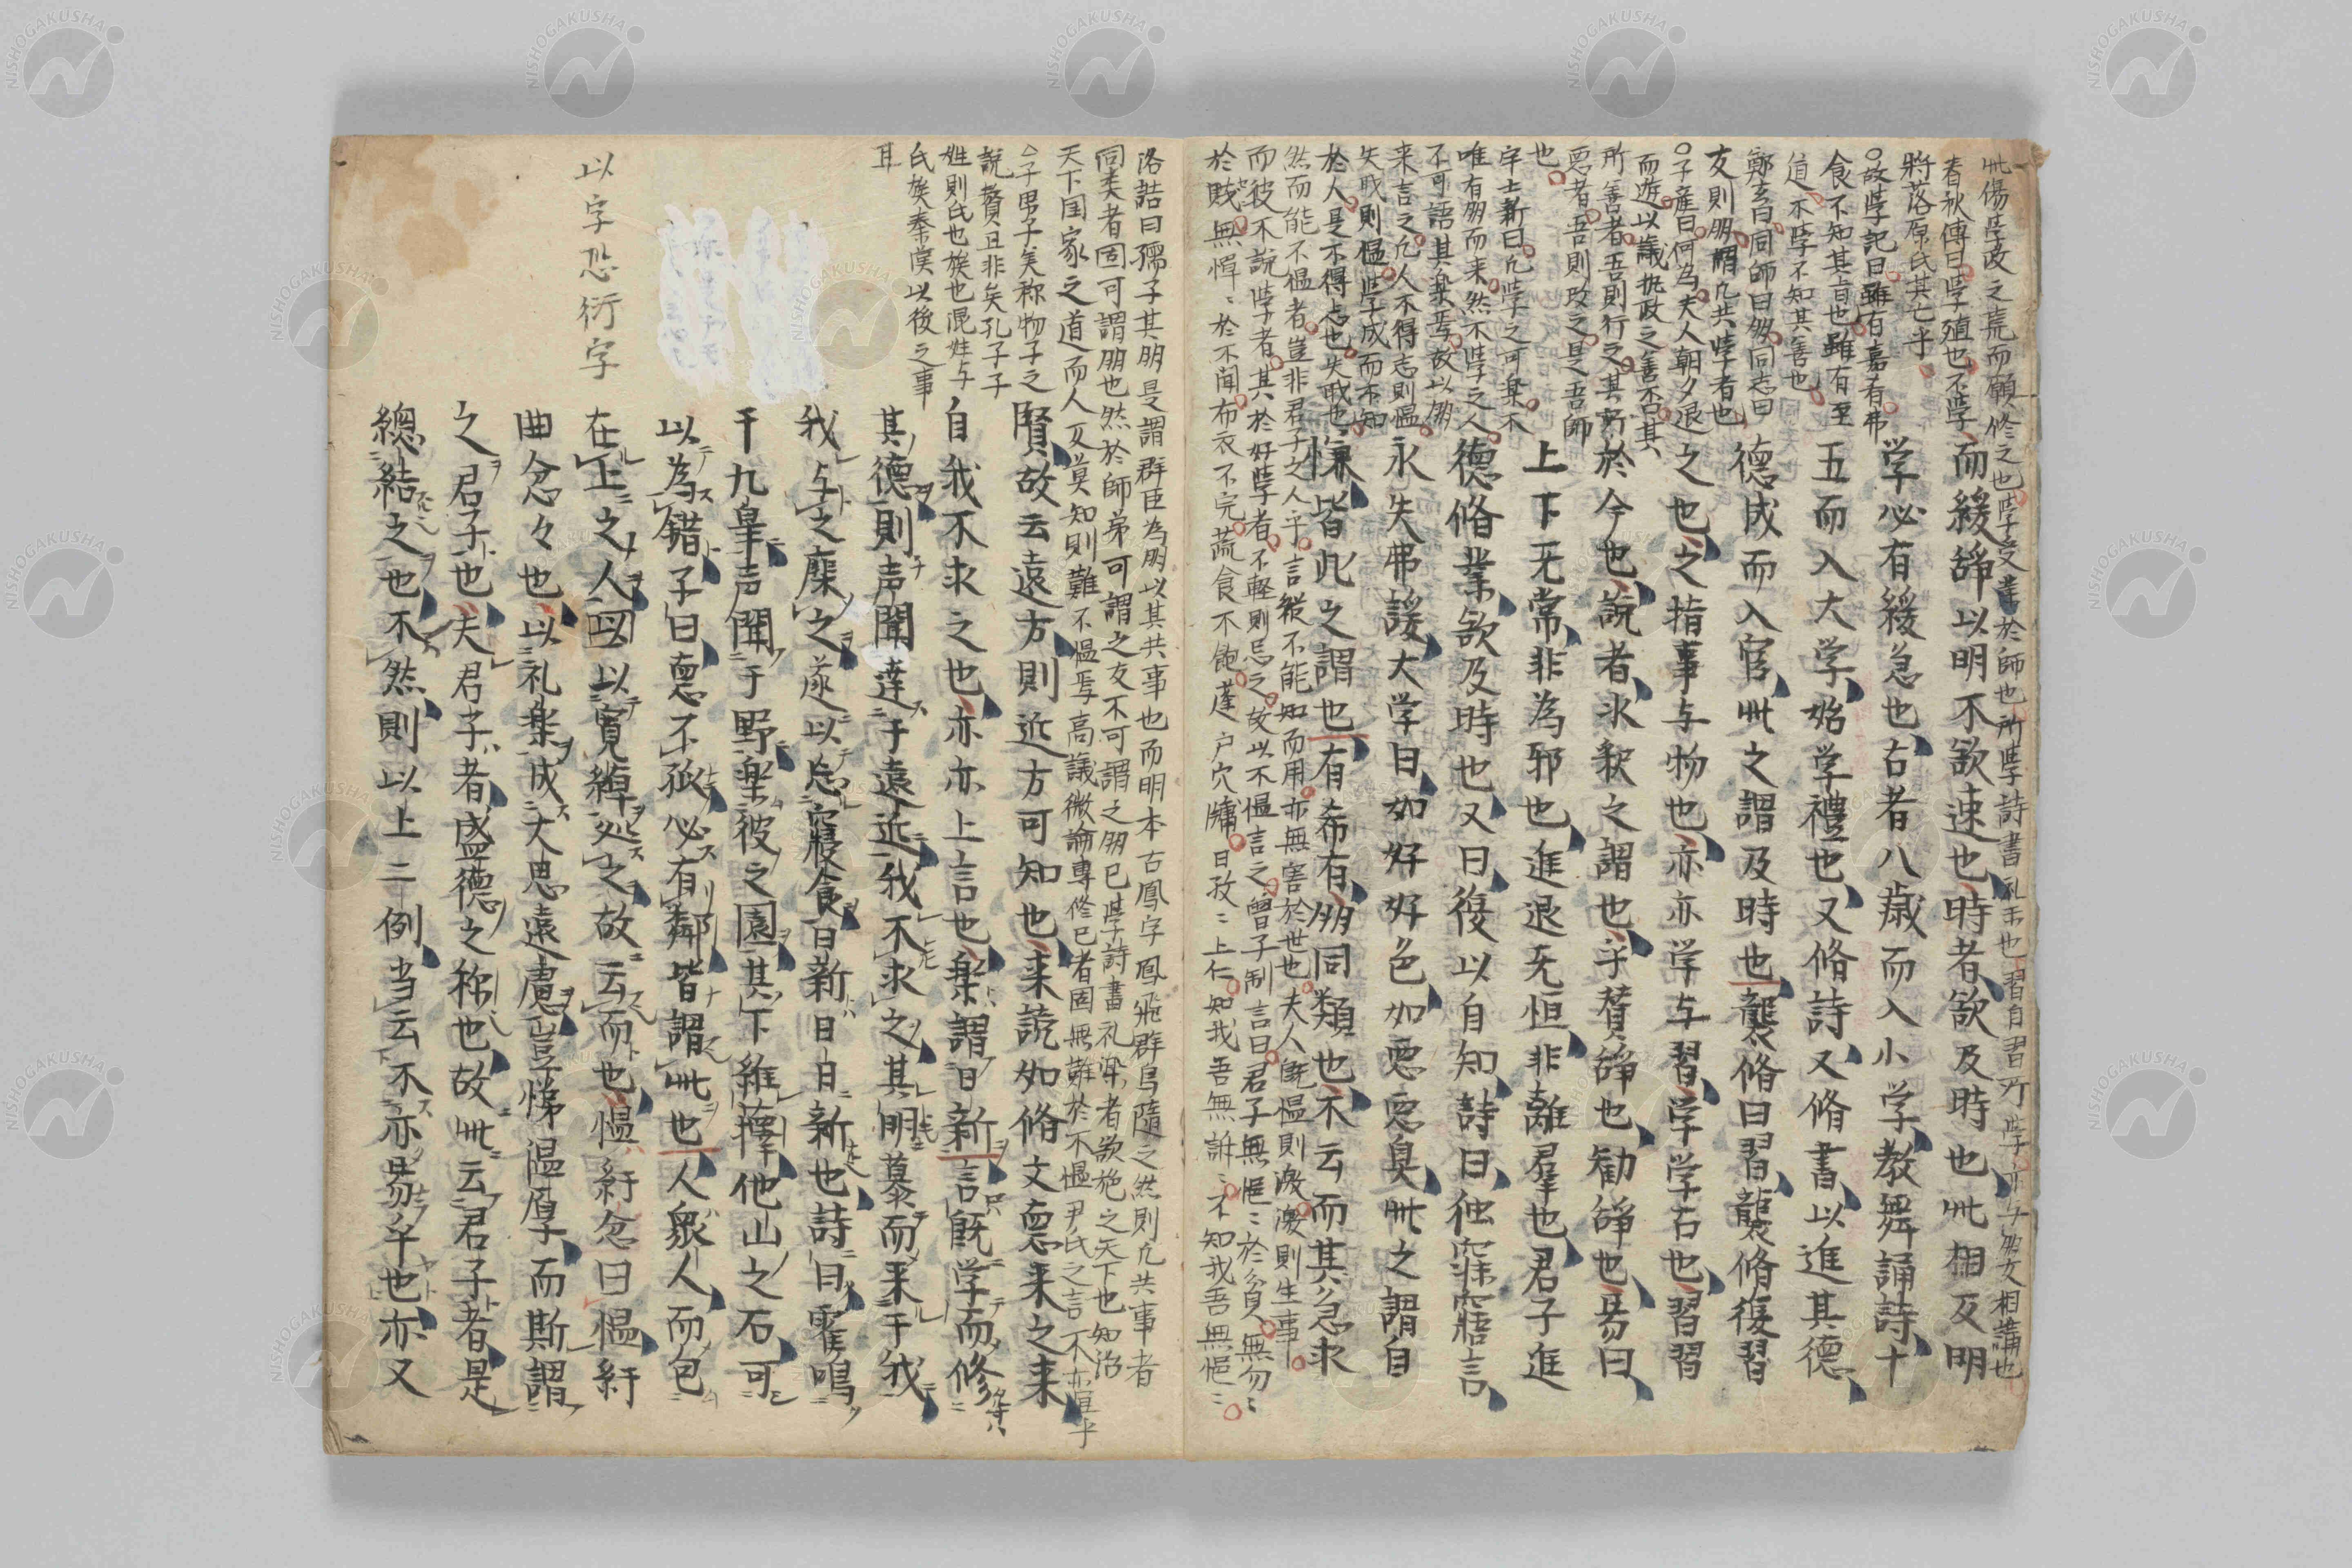 此傷学政之荒而願修之也学受業於師也所学詩書礼楽也習自習所学亦与朋友相講也
春秋傳曰学殖也不学
將落原氏其亡乎
故学記曰雖有嘉肴弗
食不知其旨也雖有至
道不学不知其善也
鄭玄曰同師曰朋同志曰
友則朋謂凡共学者也
子産曰何為夫人朝夕退
而遊以議執政之善否其
所善者吾則行之其所
悪者吾則改之是吾師
也
宇士新曰凡学之可楽不
唯有朋而来然不学之人
不可語其楽焉故以朋
来言之凡人不得志則慍
失戝則慍学成而不知
於人是不得志也失戝也
然而能不慍者豈非君子之人乎言縱不能知而用亦無害於世也夫人既慍則激激則生事
而彼不説学者其於好学者不輕則忌之故以不慍言之曾子制言曰君子無悒悒於貧無勿勿
於賎無憚憚於不聞布衣不完蔬食不飽蓬戸穴牖日孜孜上仁知我吾無訢訢不知我吾無悒悒
而緩辞以明不欲速也時者欲及時也此相反明
学必有緩急也古者八歳而入小学教舞誦詩十
五而入大学始学禮也又脩詩又脩書以進其德
德成而入官此之謂及時也襲脩曰習襲脩復習
之也之指事与物也亦亦学与習学学古也習習
於今也説者氷釈之謂也乎賛辞也勧辞也易曰
上下无常非為邪也進退无恒非離羣也君子進
德脩業欲及時也又曰復以自知詩曰独寐寤言
永矢弗諼大学曰如好好色如悪悪臭此之謂自
慊皆此之謂也有希有朋同類也不云而其急求
洛誥曰孺子其朋是謂群臣為朋以其共事也而明本古鳳字鳳飛群鳥隨之然則凡共事者
同类者固可謂朋也然於師弟可謂之友不可謂之朋已学詩書礼楽者欲施之天下也知治
天下国家之道而人又莫知則難不慍焉高議微論専修已者固無難於不慍尹氏之言不亦宜乎
子男子美称物子之
説贅且非矣孔子子
姓則氏也族也混姓与
氏族秦漢以後之事
耳
賢故云遠方則近方可知也来説如脩文悳来之来
自我不求之也亦亦上言也楽謂日新言既学而修
其德則声聞達于遠近我不求之其朋慕而来于我
我与之麋之遂以忘寝食日新日日新也詩曰靍鳴
于九皐声聞于野楽彼之園其下維蘀他山之石可
以為錯子曰悳不孤必有鄰皆謂此也人衆人而包
在上之人㕥以寛綽処之故云而也慍紆念曰慍紆
曲念々也以礼楽成大思遠慮豈悌温厚而斯謂
之君子也夫君子者盛德之称也故此云君子者是
總結之也不然則以上二例当云不亦易乎也亦又
以字恐衍字